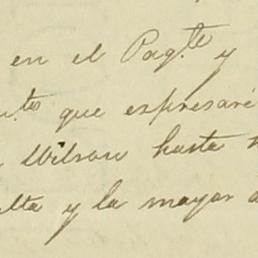 en el Paq.te y
n.tos que espresaré
Wilson hasta
lta y la mayor